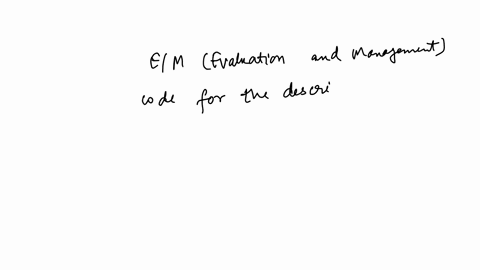 E/M (Evaluation and Management)
code for the descri